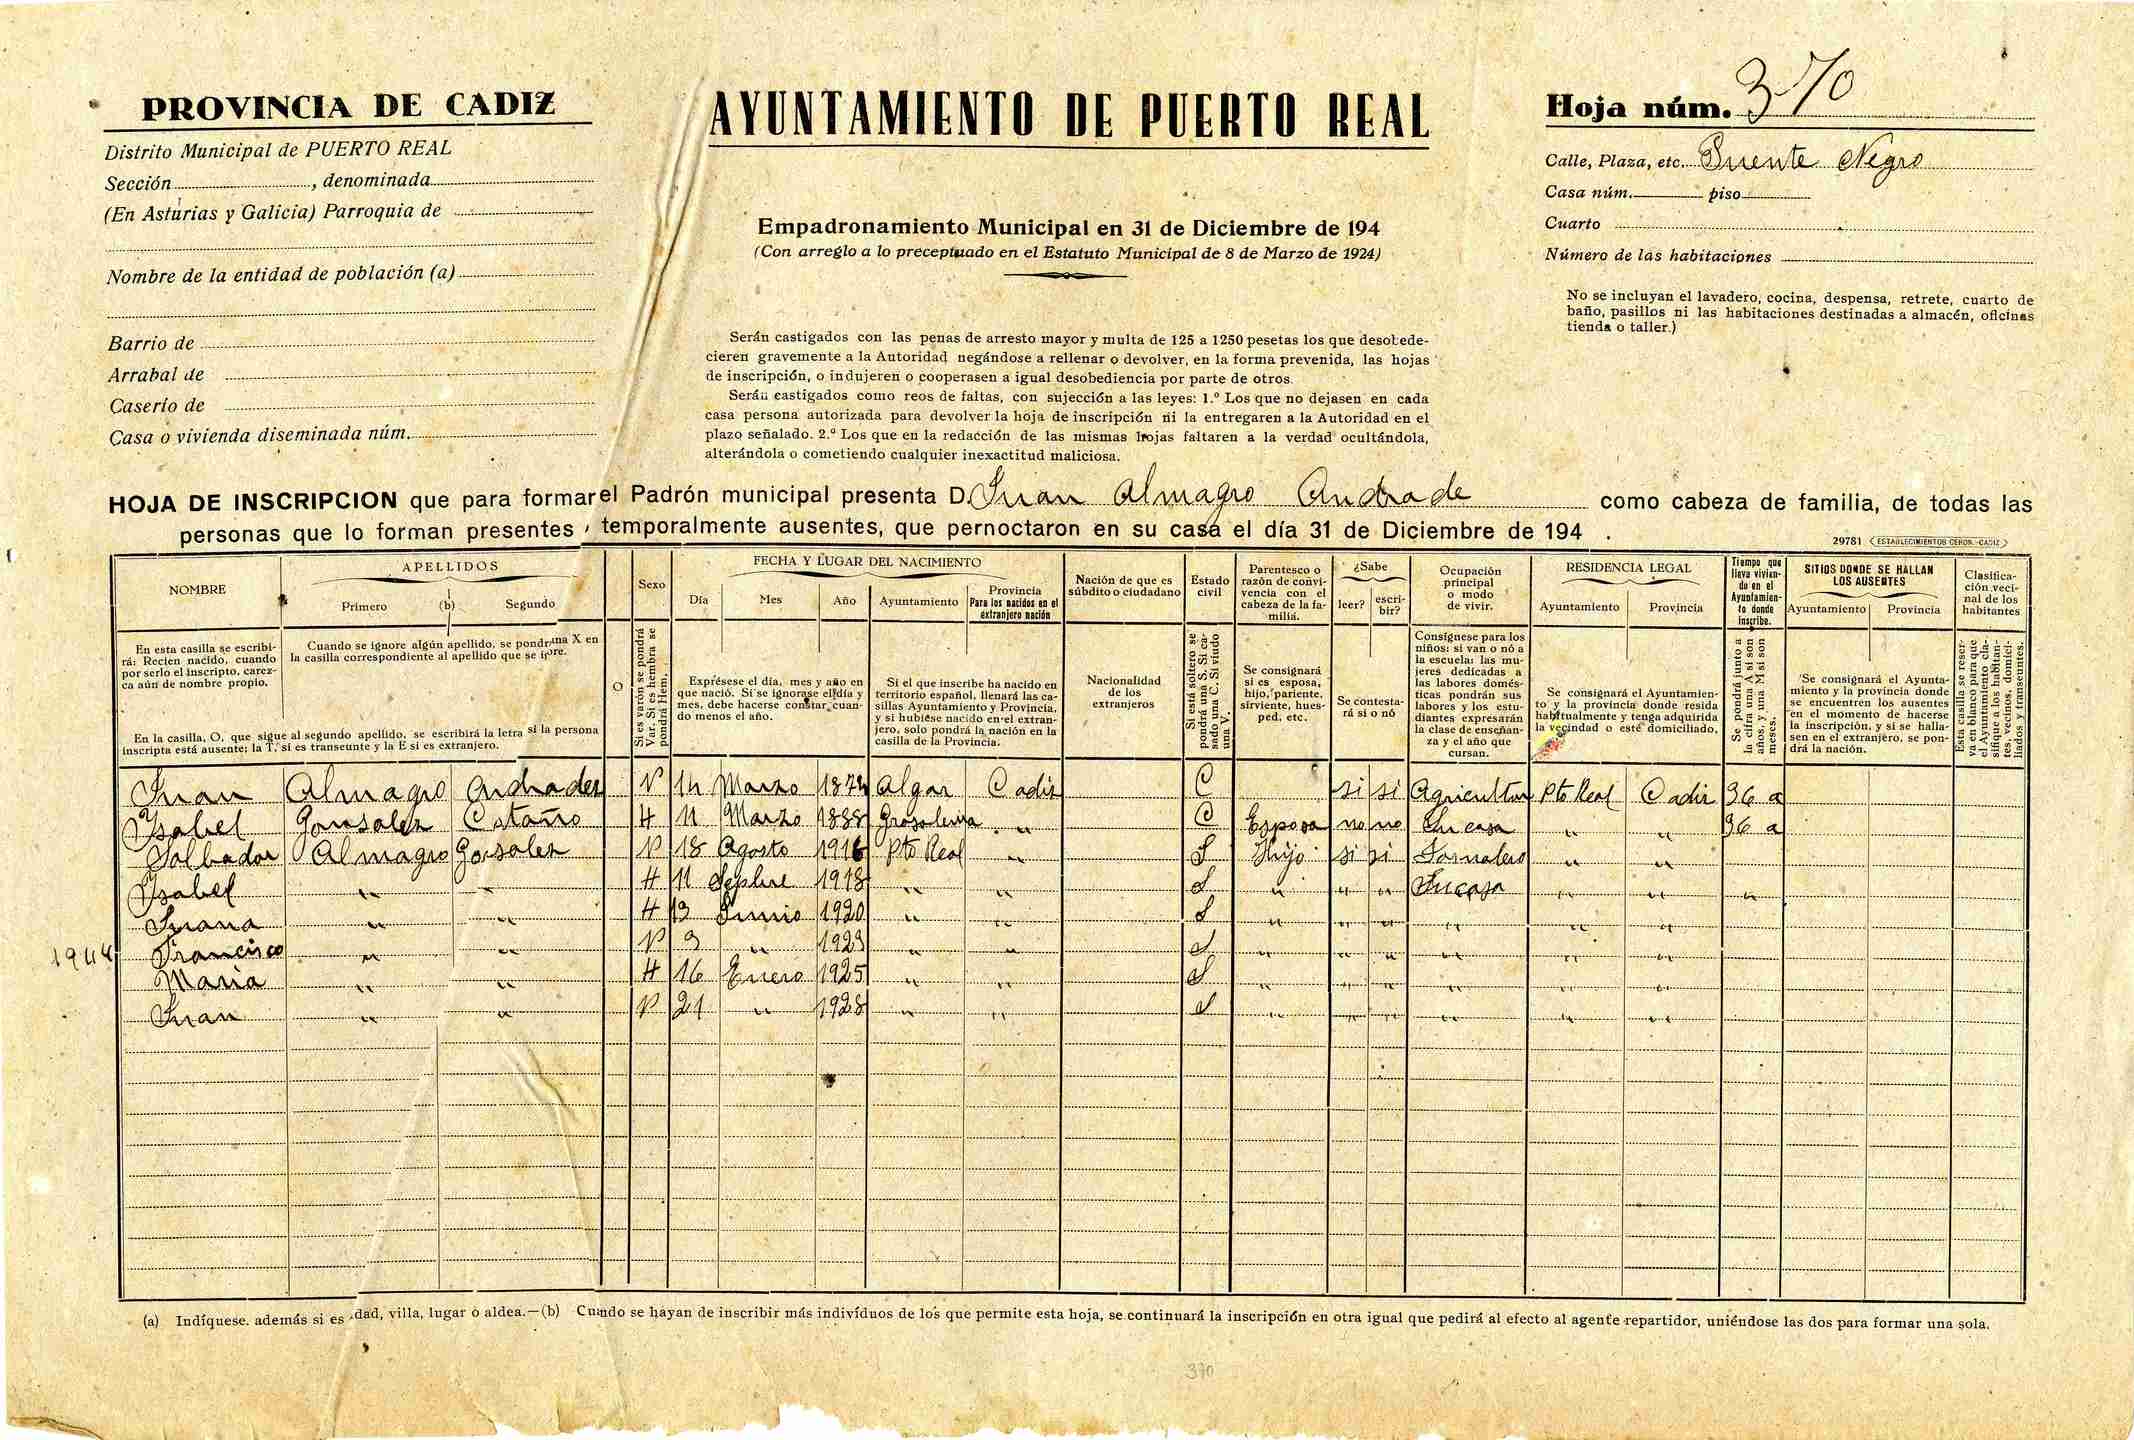 PROVINCIA DE CADIZ
Distrito Municipal de PUERTO REAL
Sección , denominada
(En Astúrias y Galicia) Parroquia de
Nombre de la entidad de población (a)
Barrio de
Arrabal de
Caserío de
Casa o vivienda diseminada núm.
AYUNTAMIENTO DE PUERTO REAL
Empadronamiento Municipal en 31 de Diciembre de 194
(Con arreglo a lo preceptuado en el Estatuto Municipal de 8 de Marzo de 1924)
Serán castigados con las penas de arresto mayor y multa de 125 a 1250 pesetas los que desobede-
cieren gravemente a la Autoridad negándose a rellenar o devolver, en la forma prevenida, las hojas
de inscripción, o indujeren o cooperasen a igual desobediencia por parte de otros.
Serán castigados como reos de faltas, con sujección a las leyes: 1.º Los que no dejasen en cada
casa persona autorizada para devolver la hoja de inscripción ni la entregaren a la Autoridad en el
plazo señalado. 2.º Los que en la redacción de las mismas hojas faltaren a la verdad ocultándola,
alterándola o cometiendo cualquier inexactitud maliciosa.
Hoja núm. 370
Calle, Plaza, etc. Puente Negro
Casa núm. piso
Cuarto
Número de las habitaciones
No se incluyan el lavadero, cocina, despensa, retrete, cuarto de
baño, pasillos ni las habitaciones destinadas a almacén, oficinas
tienda o taller.)
HOJA DE INSCRIPCION que para formar el Padrón municipal presenta D. Juan Almagro Andrade como cabeza de familia, de todas las
personas que lo forman presentes y temporalmente ausentes, que pernoctaron en su casa el día 31 de Diciembre de 194 .
29781 ESTABLECIMIENTOS CERON.-CADIZ
NOMBRE
APELLIDOS
Primero (b) Segundo
Sexo
FECHA Y LUGAR DEL NACIMIENTO
Día Mes Año Ayuntamiento
Provincia
Para los nacidos en el
extranjero nación
Nación de que es
súbdito o ciudadano
Estado
civil
Parentesco o
razón de convi-
vencia con el
cabeza de la fa-
milia.
¿Sabe
leer? escri-
bir?
Ocupación
principal
o modo
de vivir.
RESIDENCIA LEGAL
Ayuntamiento Provincia
Tiempo que
lleva vivien-
do en el
Ayuntamien-
to donde
inscribe.
SITIOS DONDE SE HALLAN
LOS AUSENTES
Ayuntamiento Provincia
Clasifica-
ción veci-
nal de los
habitantes
En esta casilla se escribi-
rá: Recien nacido, cuando
por serlo el inscripto, carez-
ca aún de nombre propio.
Cuando se ignore algún apellido, se pondrá una X en
la casilla correspondiente al apellido que se ignore.
En la casilla, O, que sigue al segundo apellido, se escribirá la letra si la persona
inscripta está ausente; la T, si es transeunte y la E si es extranjero.
O
Si es varón se pondrá
Var. Si es hembra se
pondrá Hem.
Exprésese el día, mes y año en
que nació. Si se ignorase el día y
mes, debe hacerse constar cuan-
do menos el año.
Si el que inscribe ha nacido en
territorio español, llenará las ca-
sillas Ayuntamiento y Provincia,
y si hubiese nacido en el extran-
jero, solo pondrá la nación en la
casilla de la Provincia.
Nacionalidad
de los
extranjeros
Si está soltero se
pondrá una S. Si ca-
sado una C. Si viudo
una V.
Se consignará
si es esposa,
hijo, pariente,
sirviente, hues-
ped, etc.
Se contesta-
rá si o nó
Consígnese para los
niños: si van o nó a
la escuela: las mu-
jeres dedicadas a
las labores domés-
ticas pondrán sus
labores y los estu-
diantes expresarán
la clase de enseñan-
za y el año que
cursan.
Se consignará el Ayuntamien-
to y la provincia donde resida
habitualmente y tenga adquirida
la vecindad o esté domiciliado.
Se pondrá junto a
la cifra una A si son
años, y una M si son
meses.
Se consignará el Ayunta-
miento y la provincia donde
se encuentren los ausentes
en el momento de hacerse
la inscripción, y si se halla-
sen en el extranjero, se pon-
drá la nación.
Esta casilla se reser-
va en blanco para que
el Ayuntamiento cla-
sifique a los habitan-
tes, vecinos, domici-
liados y transeuntes.
Juan Almagro Andrades V 14 Marzo 1874 Algar Cadiz C si si Agricultor Pto Real Cadiz 36 a
Ysabel Gonsalez Castaño H 11 Marzo 1888 Grasalema " C Esposa no no Su casa " " 36 a
Salbador Almagro Gonsalez V 18 Agosto 1916 Pto Real " S Hijo si si Jornalero " "
Ysabel " " H 11 Sepbre 1918 " " S " " " Su casa " " "
Juana " " H 13 Junio 1920 " " S " " " " " " "
1944 Francisco " " V 3 " 1923 " " S " " " " " " "
Maria " " H 16 Enero 1925 " " S " " " " " " "
Juan " " V 21 " 1928 " " S " " " " " " "
(a) Indíquese. además si es dad, villa, lugar o aldea.—(b) Cuando se hayan de inscribir más indivíduos de los que permite esta hoja, se continuará la inscripción en otra igual que pedirá al efecto al agente repartidor, uniéndose las dos para formar una sola.
370